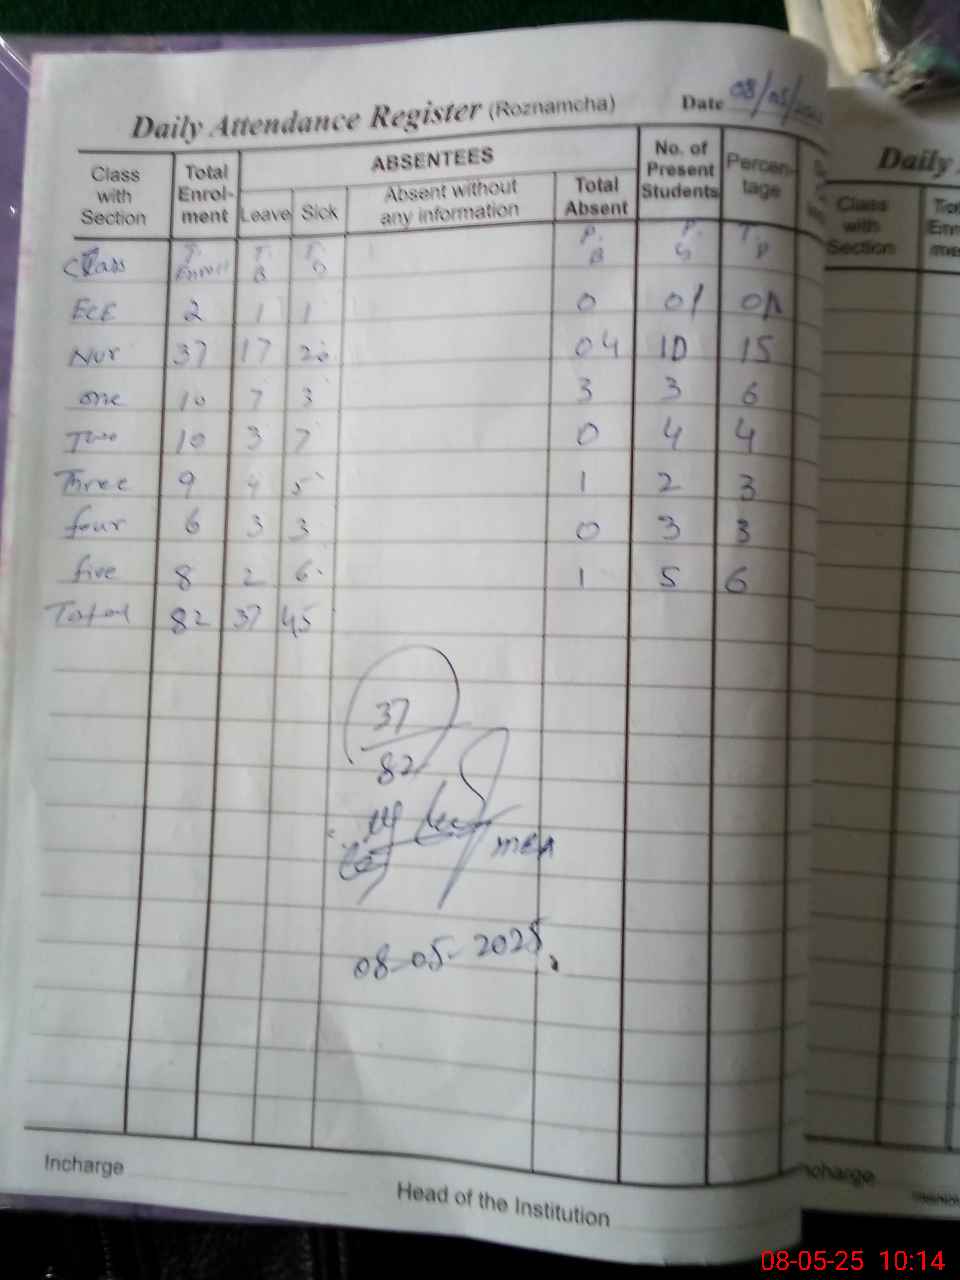 Daily Attendance Register (Roznamcha) Date 08/05/
Class with Section Total Enrol-ment ABSENTEES Leave Sick Absent without any information Total Absent No. of Present Students Percen-tage
Class T. Enroll T. B T. G P. B P. G T. P
ECE 2 1 1 0 01 01
Nur 37 17 20 04 10 15
one 10 7 3 3 3 6
Two 10 3 7 0 4 4
Three 9 4 5 1 2 3
four 6 3 3 0 3 3
five 8 2 6 1 5 6
Total 82 37 45
37
82
08-05-2025
Incharge
Head of the Institution
Daily
Class with Section
ncharge
08-05-25 10:14